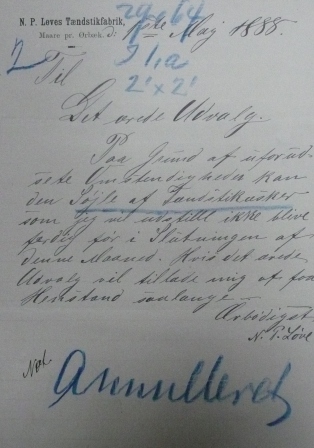 N. P. Løves Tændstikfabrik,
Maare pr. Ørbæk. D. 1ste Maj 1888.
29-64
2
31,a
2' x 2'
Til
Det ærede Udvalg.
Paa Grund af uforud-
sete Omstændigheder kan
den Søjle af Tændstikæsker
som jeg vil udstille ikke blive
færdig før i Slutningen af
denne Maaned. Hvis det ærede
Udvalg vil tillade mig at faa
Henstand saalænge.
Ærbødigst
N. P. Løve
Not.
Annulleret